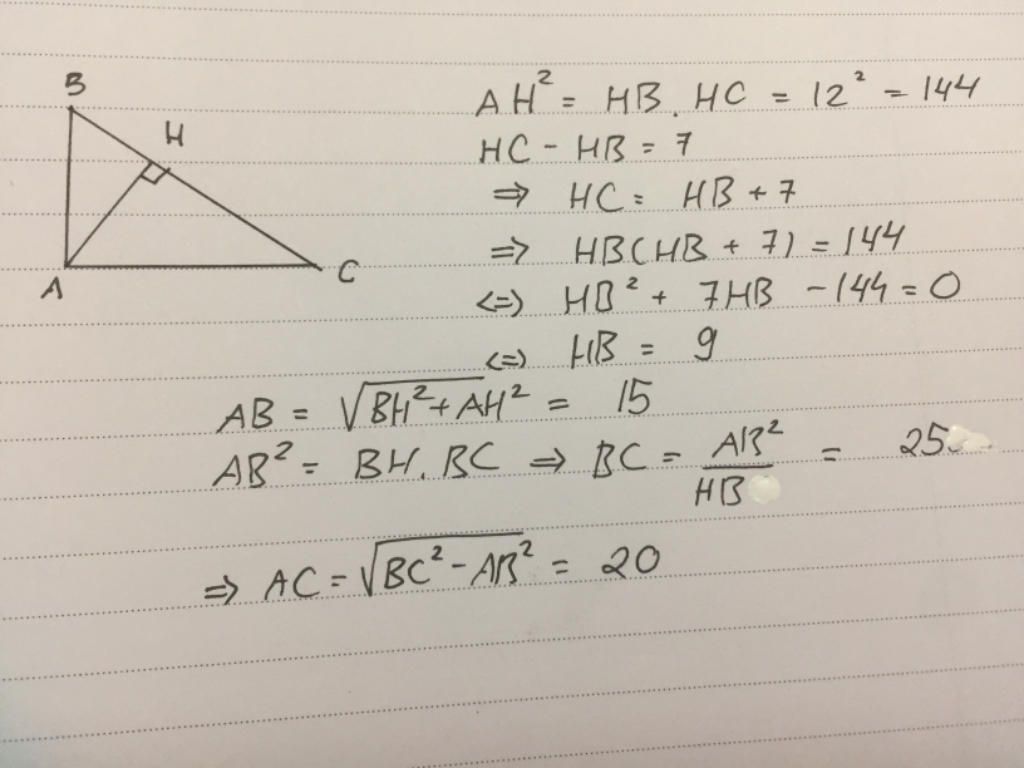 B
H
A
C
AH² = HB . HC = 12² = 144
HC - HB = 7
⇒ HC = HB + 7
⇒ HB(HB + 7) = 144
<=> HB² + 7HB - 144 = 0
<=> HB = 9
AB = √(BH² + AH²) = 15
AB² = BH . BC ⇒ BC = AB² / HB = 25
⇒ AC = √(BC² - AB²) = 20